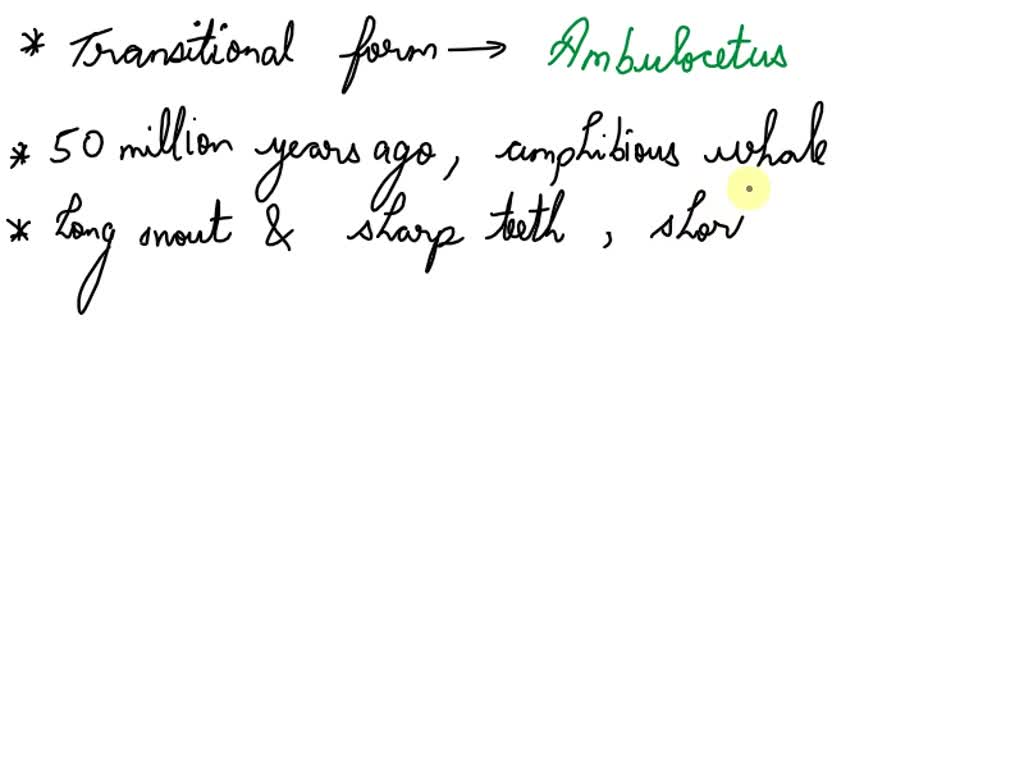 * Transitional form → Ambulocetus
* 50 million years ago, amphibious whale
* Long snout & sharp teeth, shor